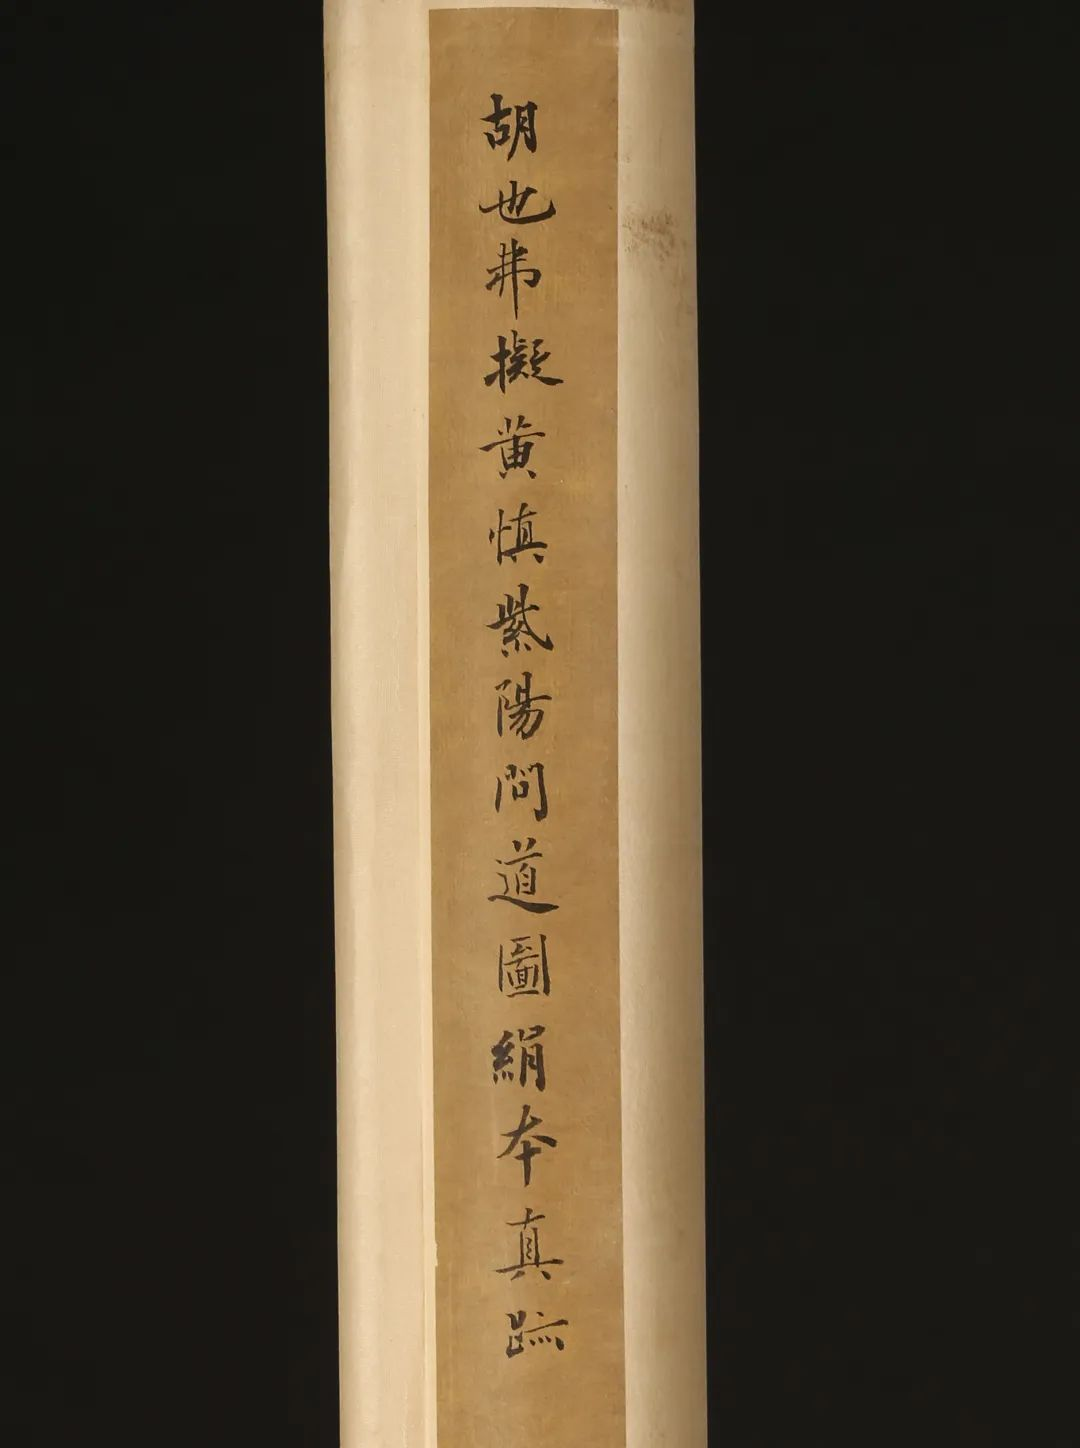 胡也弗擬黃慎紫陽問道圖絹本真跡